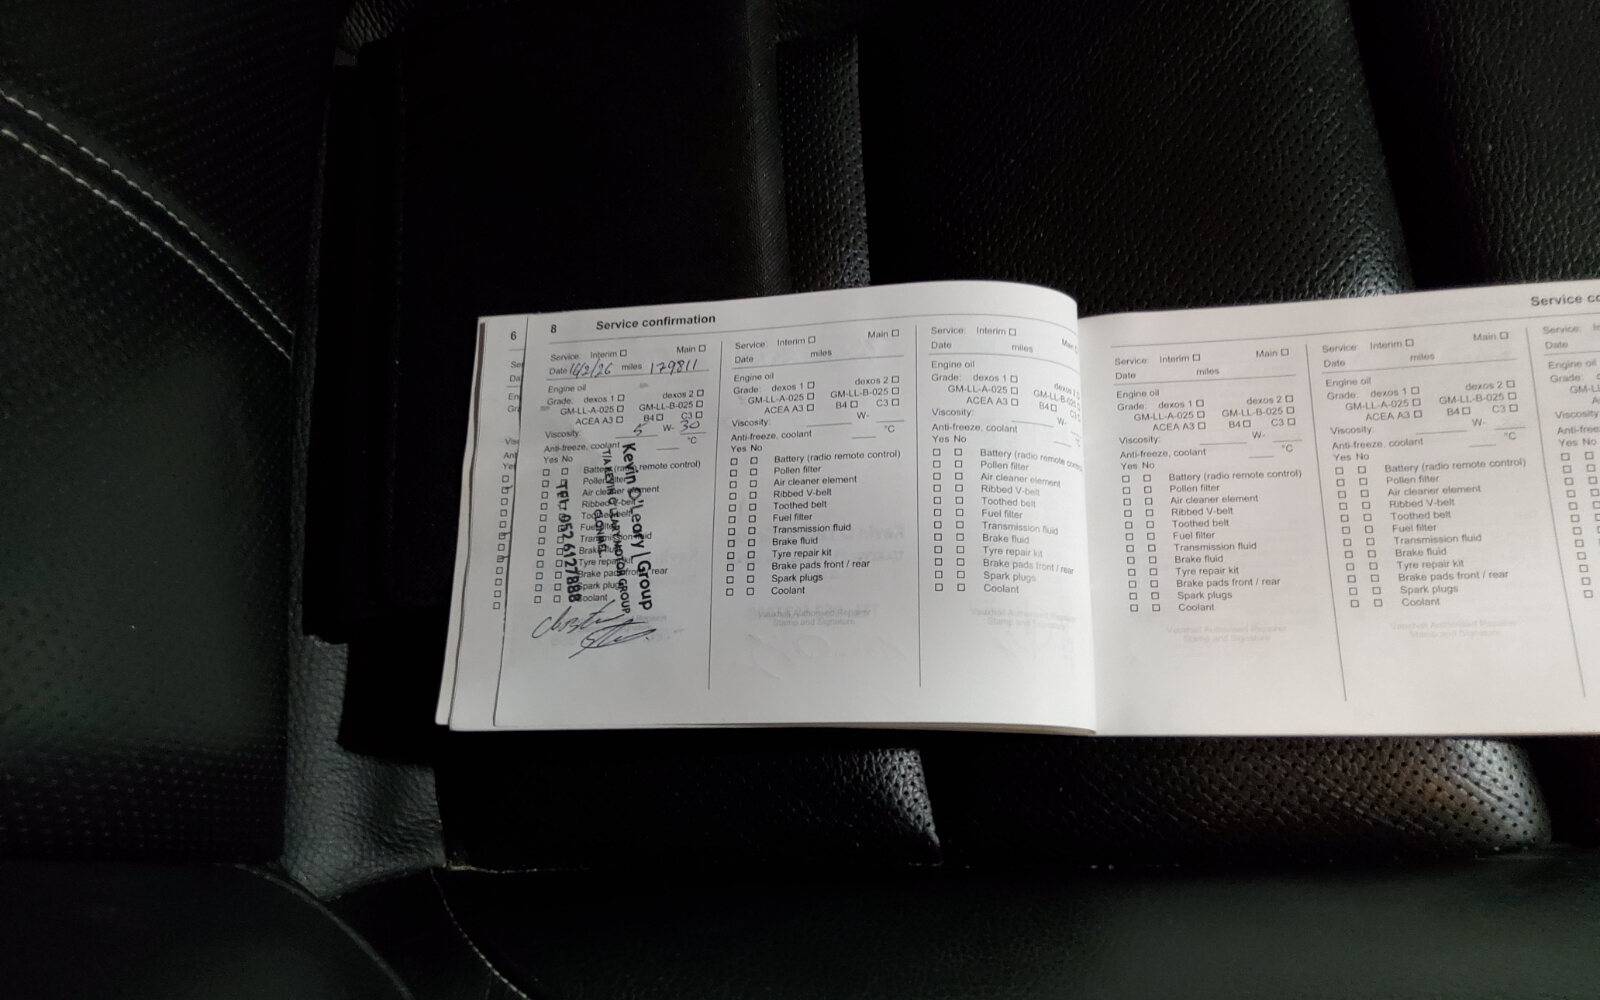 6
8 Service confirmation
Service: Interim ☐ Main ☐
Date 16/2/26 miles 179811
Engine oil
Grade: dexos 1 ☐ dexos 2 ☐
GM-LL-A-025 ☐ GM-LL-B-025 ☐
ACEA A3 ☐ B4 ☐ C3 ☐
Viscosity: 5 W- 30
Anti-freeze, coolant °C
Yes No
☐ ☐ Battery (radio remote control)
☐ ☐ Pollen filter
☐ ☐ Air cleaner element
☐ ☐ Ribbed V-belt
☐ ☐ Toothed belt
☐ ☐ Fuel filter
☐ ☐ Transmission fluid
☐ ☐ Brake fluid
☐ ☐ Tyre repair kit
☐ ☐ Brake pads front / rear
☐ ☐ Spark plugs
☐ ☐ Coolant
Kevin O'Leary | Group
T/A KEVIN O'LEARY MOTOR GROUP
CLONMEL
TEL: 052 6127888
Service: Interim ☐ Main ☐
Date miles
Engine oil
Grade: dexos 1 ☐ dexos 2 ☐
GM-LL-A-025 ☐ GM-LL-B-025 ☐
ACEA A3 ☐ B4 ☐ C3 ☐
Viscosity: W-
Anti-freeze, coolant °C
Yes No
☐ ☐ Battery (radio remote control)
☐ ☐ Pollen filter
☐ ☐ Air cleaner element
☐ ☐ Ribbed V-belt
☐ ☐ Toothed belt
☐ ☐ Fuel filter
☐ ☐ Transmission fluid
☐ ☐ Brake fluid
☐ ☐ Tyre repair kit
☐ ☐ Brake pads front / rear
☐ ☐ Spark plugs
☐ ☐ Coolant
Vauxhall Authorised Repairer
Stamp and Signature
Service: Interim ☐
Date miles
Engine oil
Grade: dexos 1 ☐ dexos 2
GM-LL-A-025 ☐ GM-LL-B-025
ACEA A3 ☐ B4 ☐ C3
Viscosity: W-
Anti-freeze, coolant °C
Yes No
☐ ☐ Battery (radio remote
☐ ☐ Pollen filter
☐ ☐ Air cleaner element
☐ ☐ Ribbed V-belt
☐ ☐ Toothed belt
☐ ☐ Fuel filter
☐ ☐ Transmission fluid
☐ ☐ Brake fluid
☐ ☐ Tyre repair kit
☐ ☐ Brake pads front / rear
☐ ☐ Spark plugs
☐ ☐ Coolant
Vauxhall Authorised Repairer
Stamp and Signature
Service
Service: Interim ☐ Main ☐
Date miles
Engine oil
Grade: dexos 1 ☐ dexos 2 ☐
GM-LL-A-025 ☐ GM-LL-B-025 ☐
ACEA A3 ☐ B4 ☐ C3 ☐
Viscosity: W-
Anti-freeze, coolant °C
Yes No
☐ ☐ Battery (radio remote control)
☐ ☐ Pollen filter
☐ ☐ Air cleaner element
☐ ☐ Ribbed V-belt
☐ ☐ Toothed belt
☐ ☐ Fuel filter
☐ ☐ Transmission fluid
☐ ☐ Brake fluid
☐ ☐ Tyre repair kit
☐ ☐ Brake pads front / rear
☐ ☐ Spark plugs
☐ ☐ Coolant
Vauxhall Authorised Repairer
Stamp and Signature
Service: Interim ☐ Main ☐
Date miles
Engine oil
Grade: dexos 1 ☐ dexos 2 ☐
GM-LL-A-025 ☐ GM-LL-B-025 ☐
ACEA A3 ☐ B4 ☐ C3 ☐
Viscosity: W-
Anti-freeze, coolant °C
Yes No
☐ ☐ Battery (radio remote control)
☐ ☐ Pollen filter
☐ ☐ Air cleaner element
☐ ☐ Ribbed V-belt
☐ ☐ Toothed belt
☐ ☐ Fuel filter
☐ ☐ Transmission fluid
☐ ☐ Brake fluid
☐ ☐ Tyre repair kit
☐ ☐ Brake pads front / rear
☐ ☐ Spark plugs
☐ ☐ Coolant
Vauxhall Authorised Repairer
Stamp and Signature
Service:
Date
Engine oil
Grade:
GM-LL
Viscosity
Anti-free
Yes No